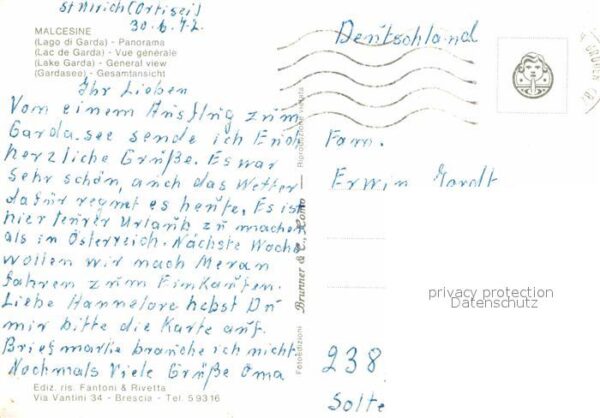 St Ulrich (Ortisei)
30.6.72
MALCESINE
(Lago di Garda) - Panorama
(Lac de Garda) - Vue générale
(Lake Garda) - General view
(Gardasee) - Gesamtansicht
Ihr Lieben
Vom einem Ausflug zum
Garda.see sende ich Euch
herzliche Grüße. Es war
sehr schön, auch das Wetter
dafür regnet es heute. Es ist
hier teurer Urlaub zu machen
als in Österreich. Nächste Woche
wollen wir nach Meran
fahren zum Einkaufen.
Liebe Hannelore hebst Du
mir bitte die Karte auf.
Briefmarke brauche ich nicht
Nochmals Viele Grüße Oma
Ediz. ris. Fantoni & Rivetta
Via Vantini 34 - Brescia - Tel. 59316
Fotoedizioni Brunner & C., Como — Riproduzione vietata
Deutschland
Fam.
Erwin
238
Solte
privacy protection
Datenschutz